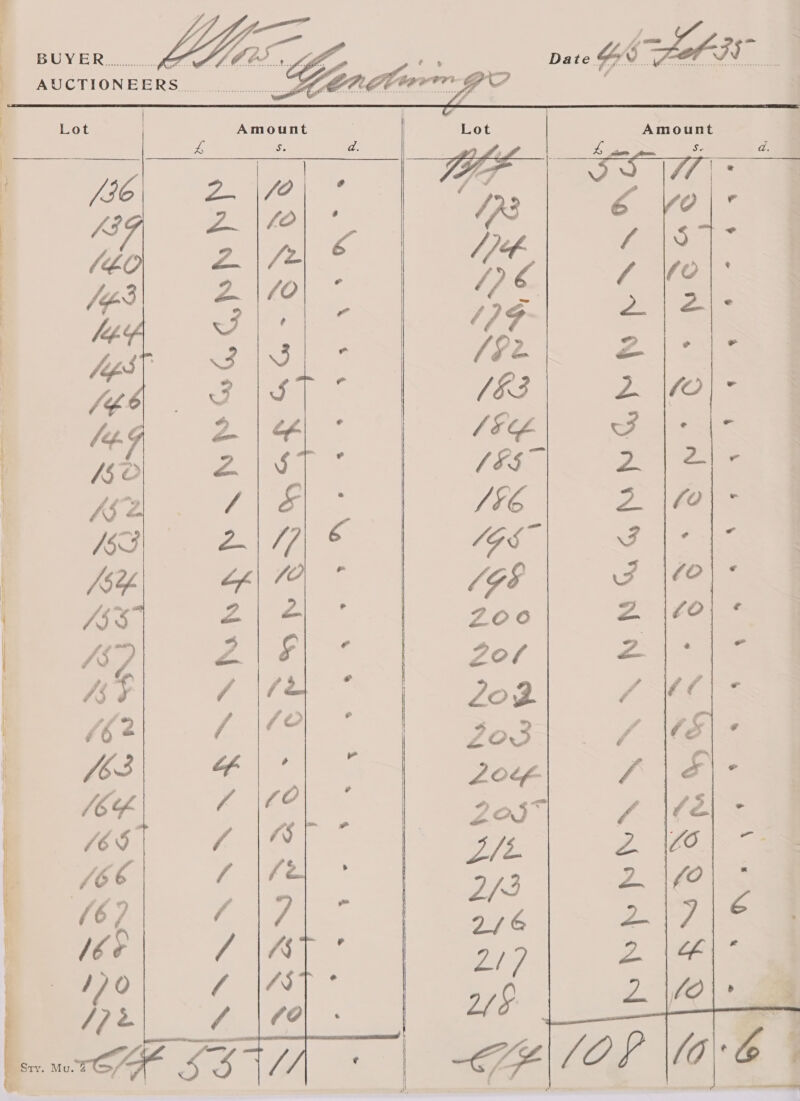 BUYER
Glendinings
AUCTIONEERS
Date 4/5 Feb 35
Lot Amount
£ s. d.
136 2 10 ·
139 2 10 ·
140 2 12 6
143 2 10 ·
144 3 · ·
145 3 3 ·
146 3 5 ·
149 2 4 ·
150 2 5 ·
152 1 8 ·
153 2 17 6
154 4 10 ·
155 2 2 ·
157 2 8 ·
158 1 12 ·
162 1 10 ·
163 4 · ·
164 1 10 ·
165 1 15 ·
166 1 12 ·
167 1 7 ·
168 1 15 ·
170 1 15 ·
172 1 10 ·
C/F 55 11 ·
Sty. Mu. 2
Lot Amount
£ s. d.
B/F 55 11 ·
173 6 10 ·
174 1 5 ·
176 1 10 ·
179 2 2 ·
182 2 · ·
183 2 10 ·
184 3 · ·
185 2 2 ·
186 2 10 ·
195 3 · ·
198 3 10 ·
200 2 10 ·
201 2 · ·
202 1 11 ·
203 1 18 ·
204 1 8 ·
205 1 12 ·
212 2 10 ·
213 2 10 ·
216 2 7 6
217 2 4 ·
218 2 10 ·
C/F 108 10 · 6